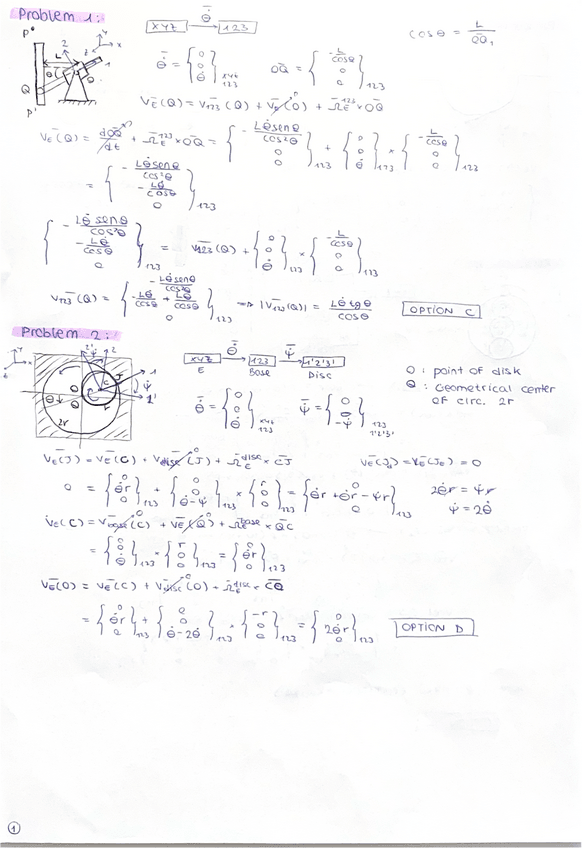 Problem 1:
xyz → θ̇ → 123
cosθ = L / OQ₁
θ̇ = {0 0 θ̇} xyz 123
OQ = {-L/cosθ 0 0} 123
v_E(Q) = v_123(Q) + v_E(O) + Ω_E^123 × OQ
v_E(Q) = dOQ/dt + Ω_E^123 × OQ = {-Lθ̇senθ/cos²θ 0 0} 123 + {0 0 θ̇} 123 × {-L/cosθ 0 0} 123
= {-Lθ̇senθ/cos²θ -Lθ̇/cosθ 0} 123
{-Lθ̇senθ/cos²θ -Lθ̇/cosθ 0} 123 = v_123(Q) + {0 0 θ̇} 123 × {-L/cosθ 0 0} 123
v_123(Q) = {-Lθ̇senθ/cos²θ -Lθ̇/cosθ + Lθ̇/cosθ 0} 123 ⇒ |v_123(Q)| = Lθ̇tgθ/cosθ
OPTION C
Problem 2:
xyz → θ̇ → 123 → ψ̇ → 1'2'3'
E Base Disc
O: point of disk
Q: Geometrical center
of circ. 2r
θ̇ = {0 0 θ̇} xyz 123
ψ̇ = {0 0 -ψ̇} 123 1'2'3'
v_E(J) = v_E(C) + v_disc(J) + Ω_E^disc × CJ
v_E(J_d) = v_E(J_E) = 0
0 = {0 θ̇r 0} 123 + {0 0 θ̇-ψ̇} 123 × {r 0 0} 123 = {0 θ̇r + θ̇r - ψ̇r 0} 123
2θ̇r = ψ̇r
ψ̇ = 2θ̇
v_E(C) = v_base(C) + v_E(Q) + Ω_E^Base × QC
= {0 0 θ̇} 123 × {r 0 0} 123 = {0 θ̇r 0} 123
v_E(O) = v_E(C) + v_disc(O) + Ω_E^disc × CO
= {0 θ̇r 0} 123 + {0 0 θ̇-2θ̇} 123 × {-r 0 0} 123 = {0 2θ̇r 0} 123
OPTION D
1